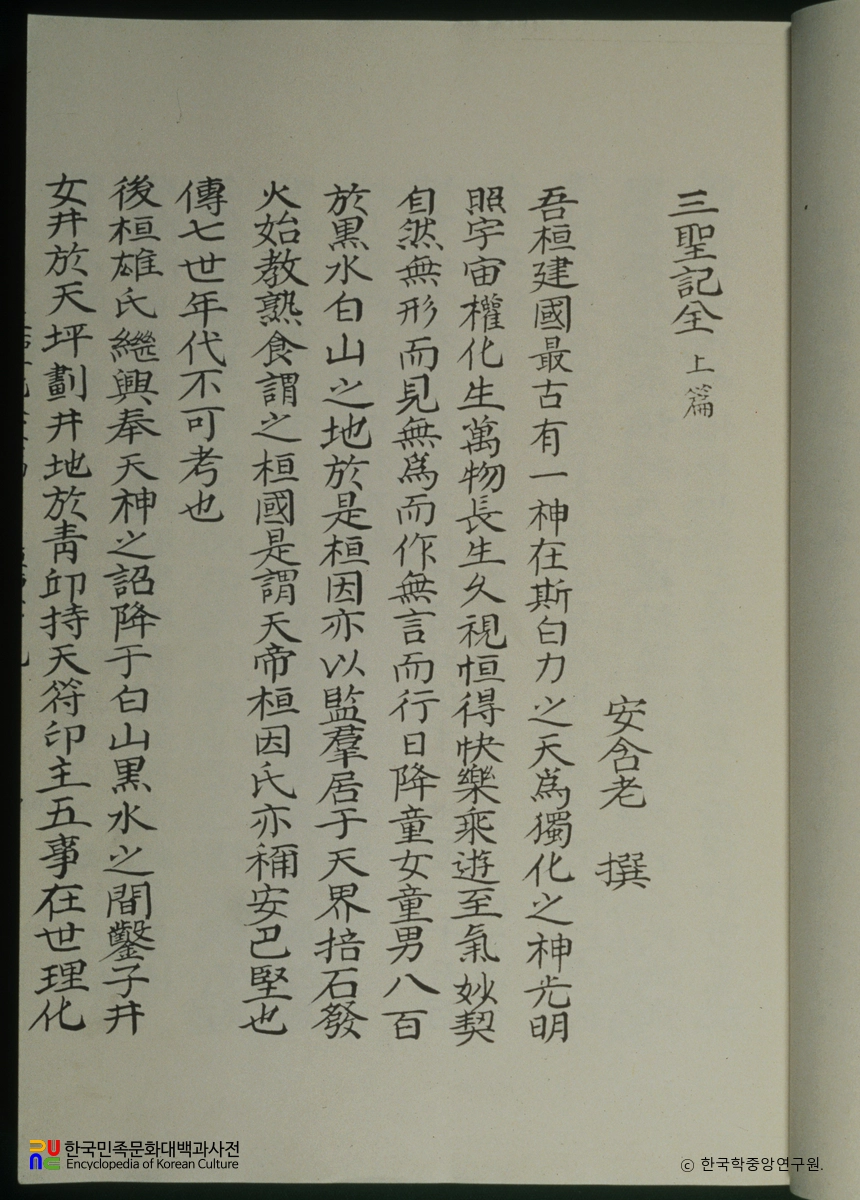 三聖記全 上篇
安含老 撰
吾桓建國最古有一神在斯白力之天爲獨化之神光明
照宇宙權化生萬物長生久視恒得快樂乘遊至氣妙契
自然無形而見無爲而作無言而行日降童女童男八百
於黒水白山之地於是桓因亦以監羣居于天界掊石發
火始教熟食謂之桓國是謂天帝桓因氏亦稱安巴堅也
傳七世年代不可考也
後桓雄氏繼興奉天神之詔降于白山黒水之間鑿子井
女井於天坪劃井地於青邱持天符印主五事在世理化
한국민족문화대백과사전
Encyclopedia of Korean Culture
ⓒ 한국학중앙연구원.